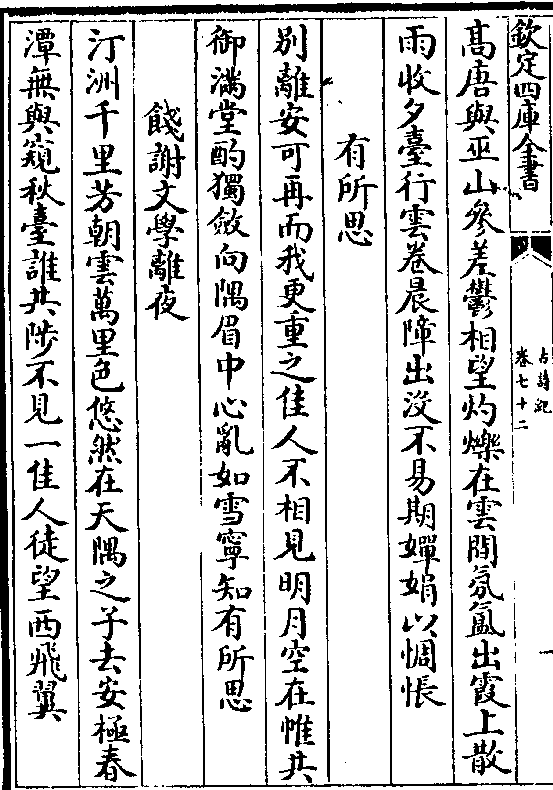 欽定四庫全書
古詩紀
卷七十二
髙唐與巫山參差鬱相望灼爍在雲間氛氳出霞上散
雨收夕臺行雲卷晨障出没不易期嬋娟以惆悵
有所思
别離安可再而我更重之佳人不相見明月空在帷共
御滿堂酌獨斂向隅眉中心亂如雪寧知有所思
餞謝文學離夜
汀洲千里芳朝雲萬里色悠然在天隅之子去安極春
潭無與窺秋臺誰共陟不見一佳人徒望西飛翼